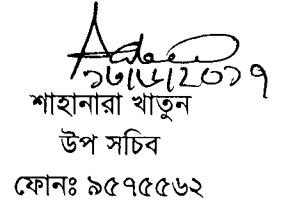 ১৬/৮/2০১৭
শাহানারা খাতুন
উপ সচিব
ফোনঃ ৯৫৭৫৫৬২